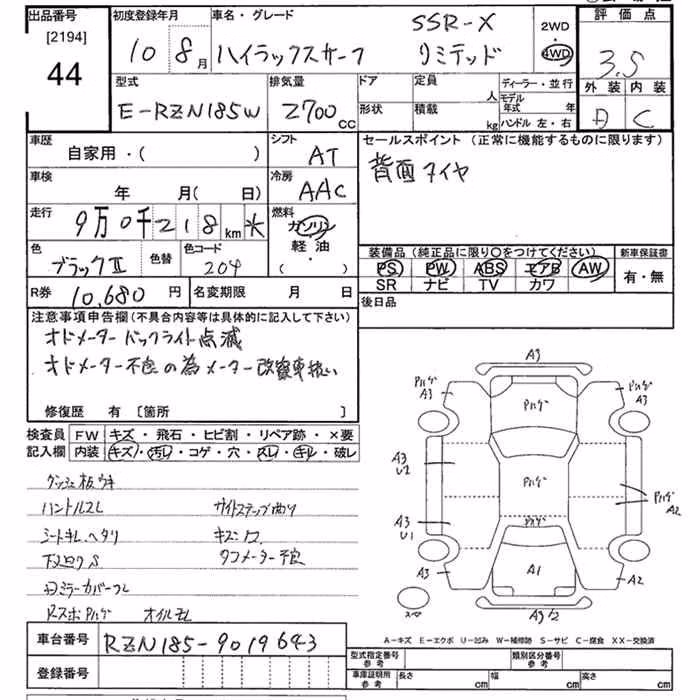 出品番号
[2194]
44
初度登録年月
10 8 月
車名・グレード
SSR-X
ハイラックスサーフ リミテッド
2WD
4WD
評価点
3.5
外装 内装
D C
型式
E-RZN185W
排気量
2700 cc
ドア
形状
定員
人
積載
kg
ディーラー・並行
モデル年式 年
ハンドル 左・右
車歴
自家用・( )
シフト
AT
セールスポイント(正常に機能するものに限ります)
背面タイヤ
車検
年 月( 日)
冷房
AAC
走行
9万0千218km*
燃料
ガソリン
軽油
( )
色
ブラックⅡ
色替
色コード
204
装備品(純正品に限り○をつけてください)
PS PW ABS エアB AW
SR ナビ TV カワ
新車保証書
有・無
R券
10,680円
名変期限 月 日
後日品
注意事項申告欄(不具合内容等は具体的に記入して下さい)
オドメーターバックライト点滅
オドメーター不良の為メーター改ざん車扱い
修復歴 有 [箇所 ]
検査員
記入欄
FW キズ・飛石・ヒビ割・リペア跡・×要
内装 キズ・汚レ・コゲ・穴・スレ・キレ・破レ
ダッシュ板ウキ
ハンドルスレ
サイドステップ曲り
シートキレ、ヘタリ
キズ
下廻りS
タコメーター不良
ミラーカバーワレ
Rスポ Pハゲ オイルモレ
A3
Pハゲ
A3
Pハゲ
Pハゲ
A3
A3
U2
Pハゲ
Pハゲ
A2
A3
U1
Pハゲ
A3
A1
A2
A3
A-キズ E-エクボ U-凹み W-補修跡 S-サビ C-腐食 XX-交換済
車台番号
RZN185-9019643
登録番号
型式指定番号
参考
類別区分番号
参考
車庫証明所
参考
長さ cm
幅 cm
高さ cm